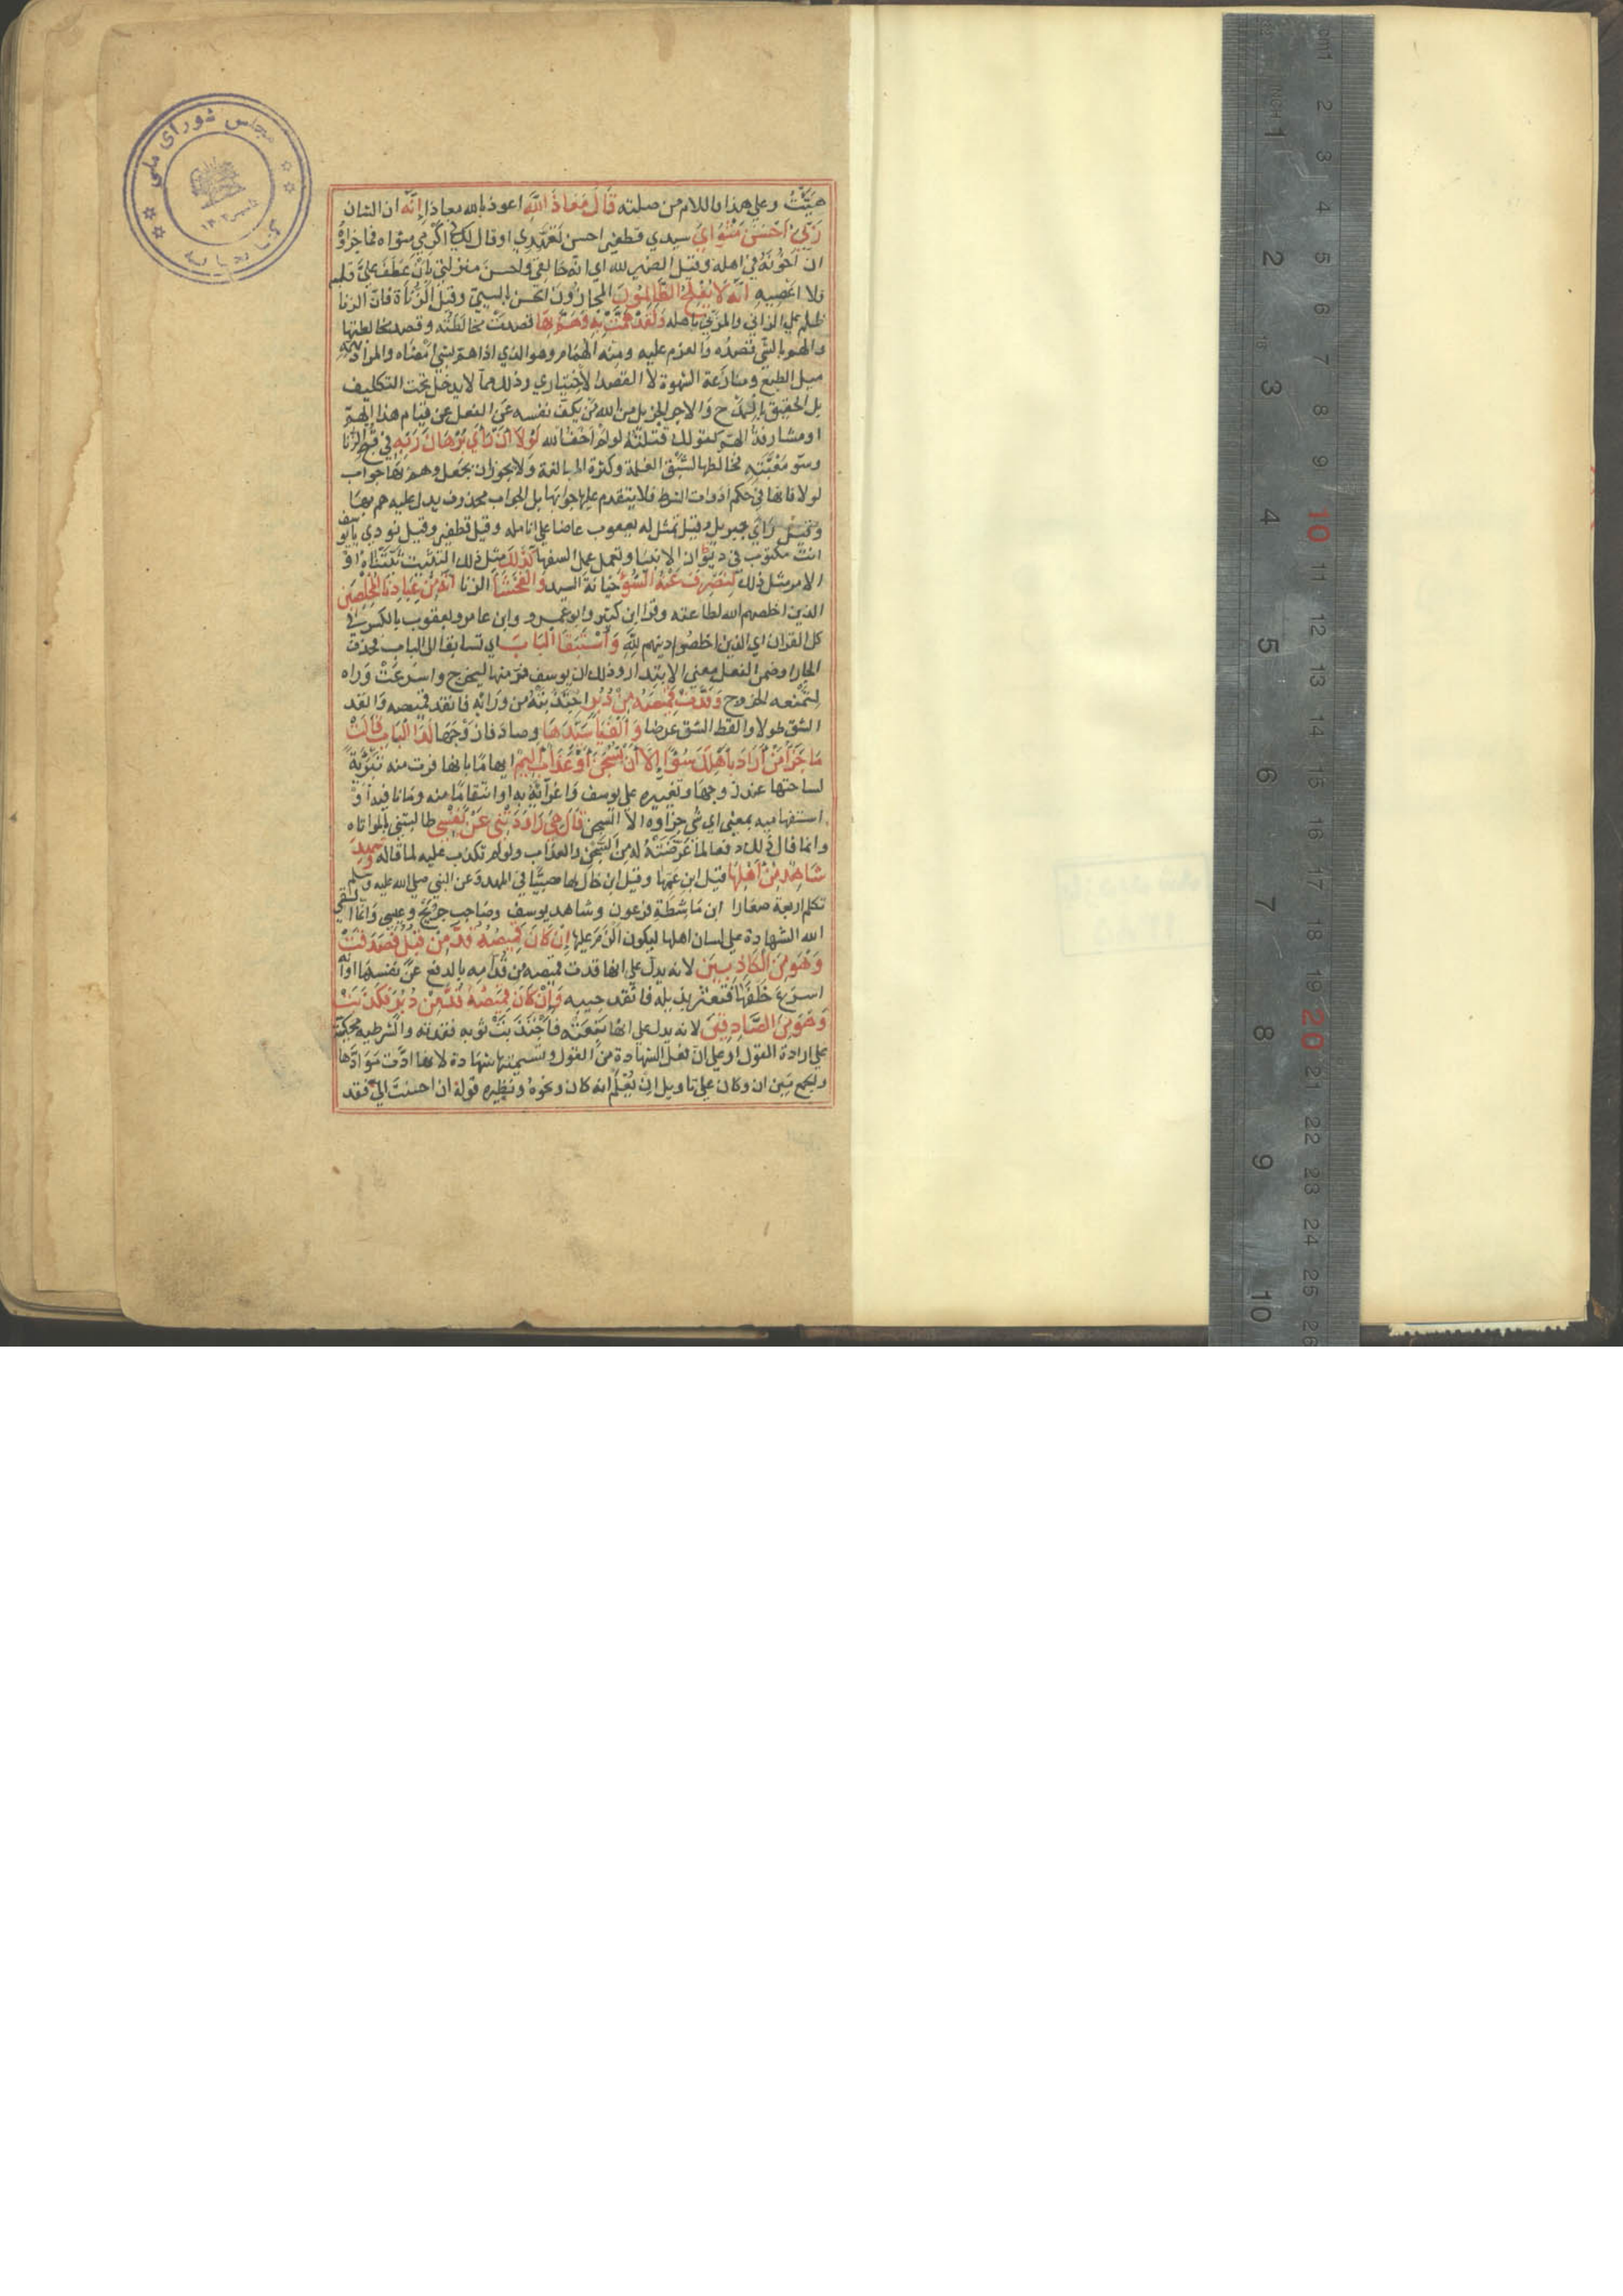 هيّئتُ وعلى هذا فاللام من صلته قَالَ مَعَاذَ اللَّهِ اعوذ بالله معاذا إِنَّهُ ان الشان
رَبِّي أَحْسَنَ مَثْوَايَ سيدي قطفير احسن تعهدي اذ قال لك اكرمي مثواه فما جزاؤه
ان أخونه في اهله وقيل الضمير لله اي انه خالقي واحسن منزلتي بان عطف عليّ قلبه
فلا اعصيه إِنَّهُ لَا يُفْلِحُ الظَّالِمُونَ المجازون الحسن بالسيئ وقيل الزناة فان الزنا
ظلم على الزاني والمزني باهله وَلَقَدْ هَمَّتْ بِهِ وَهَمَّ بِهَا قصدت مخالطته وقصد مخالطتها
والهم بالشي قصده والعزم عليه ومنه الهمام وهو الذي اذا هم بشي امضاه والمراد بهمه
ميل الطبع ومنازعة الشهوة لا القصد الاختياري وذلك مما لا يدخل تحت التكليف
بل الحقيق بالمدح والاجر الجزيل من الله من يكف نفسه عن الفعل عن قيام هذا الهمّ
او مشارفة الهمّ كقولك قتلته لو لم اخف الله لَوْلَا أَنْ رَأَى بُرْهَانَ رَبِّهِ في قبح الزنا
وسوّ مغبّته لخالطها لشبق الغلمة وكثرة المبالغة ولا يجوز ان يجعل وهم بها جواب
لولا فانها في حكم ادوات الشرط فلا يتقدم عليها جوابها بل الجواب محذوف يدل عليه هم بها
وقيل رأى جبريل وقيل تمثل له يعقوب عاضا على انامله وقيل قطفير وقيل نودي يا يوسف
انت مكتوب في ديوان الانبيا وتعمل عمل السفها كَذَلِكَ مثل ذلك التثبيت ثبتناه او
الامر مثل ذلك لِنَصْرِفَ عَنْهُ السُّوءَ خيانة السيد وَالْفَحْشَاءَ الزنا إِنَّهُ مِنْ عِبَادِنَا الْمُخْلَصِينَ
الذين اخلصهم الله لطاعته وقرا ابن كثير وابو عمرو وابن عامر ويعقوب بالكسر في
كل القران اي الذين اخلصوا دينهم لله وَاسْتَبَقَا الْبَابَ اي تسابقا الى الباب فحذف
الجار او ضمن الفعل معنى الابتدار وذلك ان يوسف فرّ منها ليخرج واسرعت وراه
لتمنعه الخروج وَقَدَّتْ قَمِيصَهُ مِنْ دُبُرٍ اجتذبته من ورائه فانقد قميصه والقد
الشق طولا والقط الشق عرضا وَأَلْفَيَا سَيِّدَهَا وصادفا زوجها لَدَى الْبَابِ قَالَتْ
مَا جَزَاءُ مَنْ أَرَادَ بِأَهْلِكَ سُوءًا إِلَّا أَنْ يُسْجَنَ أَوْ عَذَابٌ أَلِيمٌ ايهاما بانها فرت منه تبرئة
لساحتها عند زوجها وتغييره على يوسف واغرائه به او انتقاما منه وما نافية او
استفهامية بمعنى اي شي جزاوه الا السجن قَالَ هِيَ رَاوَدَتْنِي عَنْ نَفْسِي طالبتني بالمواتاه
وانما قال ذلك دفعا لما عرضته له من السجن والعذاب ولو لم تكذب عليه لما قاله وَشَهِدَ
شَاهِدٌ مِنْ أَهْلِهَا قيل ابن عمها وقيل ابن خال لها صبيّا في المهد وعن النبي صلى الله عليه وسلم
تكلم اربعة صغارا ابن ماشطة فرعون وشاهد يوسف وصاحب جريج وعيسى وانما القى
الله الشهادة على لسان اهلها ليكون الزم عليها إِنْ كَانَ قَمِيصُهُ قُدَّ مِنْ قُبُلٍ فَصَدَقَتْ
وَهُوَ مِنَ الْكَاذِبِينَ لانه يدل على انها قدت قميصه من قدامه بالدفع عن نفسها او انه
اسرع خلفها فتعثر بذيله فانقد جيبه وَإِنْ كَانَ قَمِيصُهُ قُدَّ مِنْ دُبُرٍ فَكَذَبَتْ
وَهُوَ مِنَ الصَّادِقِينَ لانه يدل على انها تبعته فاجتذبت ثوبه فقدته والشرطية محكية
على ارادة القول او على ان فعل الشهادة من القول وتسميتها شهادة لانها ادّت مؤادّها
والجمع بين ان وكان على تاويل ان يُعلم انه كان ونحوه ونظيره قوله ان احسنت اليّ فقد
مجلس شورای ملی